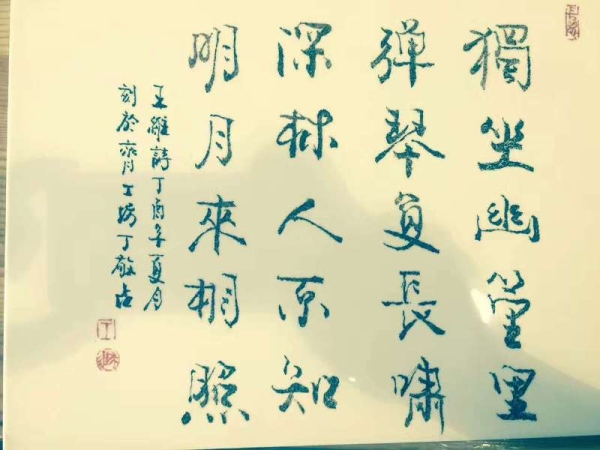 獨坐幽篁里
彈琴复長嘯
深林人不知
明月來相照
王維詩丁酉年夏月
刻於齊工坊丁敬